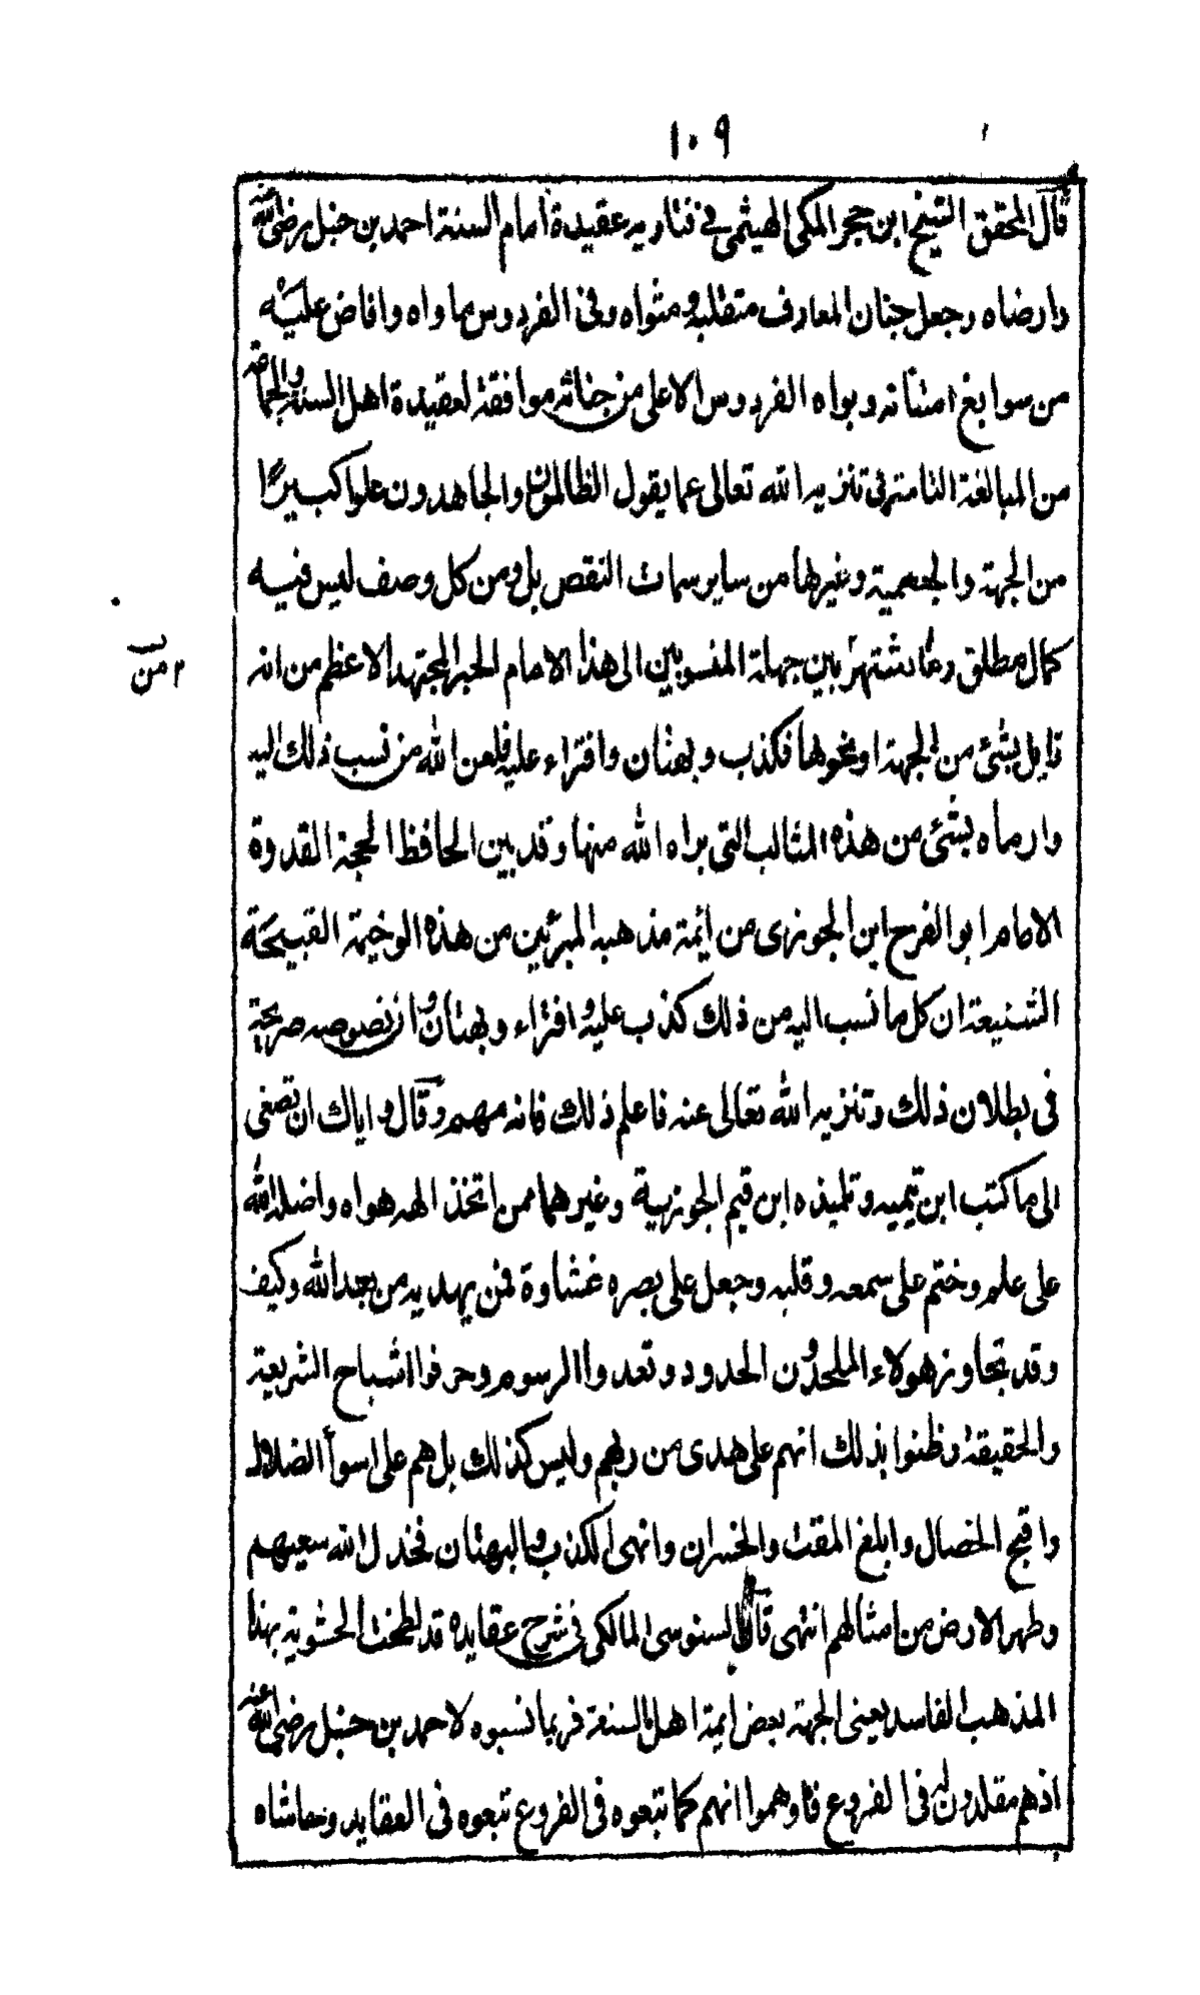 ١٠٩
قال المحقق الشيخ ابن حجر المكى الهيثمى فى فتاويه عقيدة امام السنة احمد بن حنبل رضى الله عنه
وارضاه وجعل جنان المعارف متقلبه ومثواه وفى الفردوس ماواه وافاض عليه
من سوابغ امتنانه وبواه الفردوس الاعلى من جنانه موافقة لعقيدة اهل السنة والجماعة
من المبالغة التامة فى تنزيه الله تعالى عما يقول الظالمون والجاحدون علوا كبيرًا
من الجهة والجسمية وغيرها من ساير سمات النقص بل ومن كل وصف ليس فيه
كمال مطلق وما اشتهر بين جهلة المنسوبين الى هذا الامام الحبر المجتهد الاعظم من انه
٢ من
قايل بشئ من الجهة او نحوها فكذب وبهتان وافتراء عليه فلعن الله من نسب ذلك اليه
وارماه بشئ من هذه المثالب التى براه الله منها وقد بين الحافظ الحجة القدوة
الامام ابو الفرح ابن الجوزى من ائمة مذهبه المبرئين من هذه الوخيمة القبيحة
الشنيعة ان كل ما نسب اليه من ذلك كذب عليه وافتراء وبهتان وان نصوصه صريحة
فى بطلان ذلك وتنزيه الله تعالى عنه فاعلم ذلك فانه مهم وقال واياك ان تصغى
الى ما كتب ابن تيميه وتلميذه ابن قيم الجوزية وغيرهما ممن اتخذ الهه هواه واضله الله
على علم وختم على سمعه وقلبه وجعل على بصره غشاوة فمن يهديه من بعد الله وكيف
وقد تجاوز هولاء الملحدون الحدود وتعدوا الرسوم وحرفوا اشباح الشريعة
والحقيقة وظنوا بذلك انهم على هدى من ربهم وليس كذلك بل هم على اسوأ الضلال
واقبح الخصال وابلغ المقت والخسران وانهى الكذب والبهتان فخذل الله سعيهم
وطهر الارض من امثالهم انتهى قال السنوسى المالكى فى شرح عقايده قد لطخت الحشوية بهذا
المذهب الفاسد يعنى الجهة بعض ايمة اهل السنة فربما نسبوه لاحمد بن حنبل رضى الله عنه
اذ هم مقلدون له فى الفروع فاوهموا انهم كما تبعوه فى الفروع تبعوه فى العقايد وحاشاه